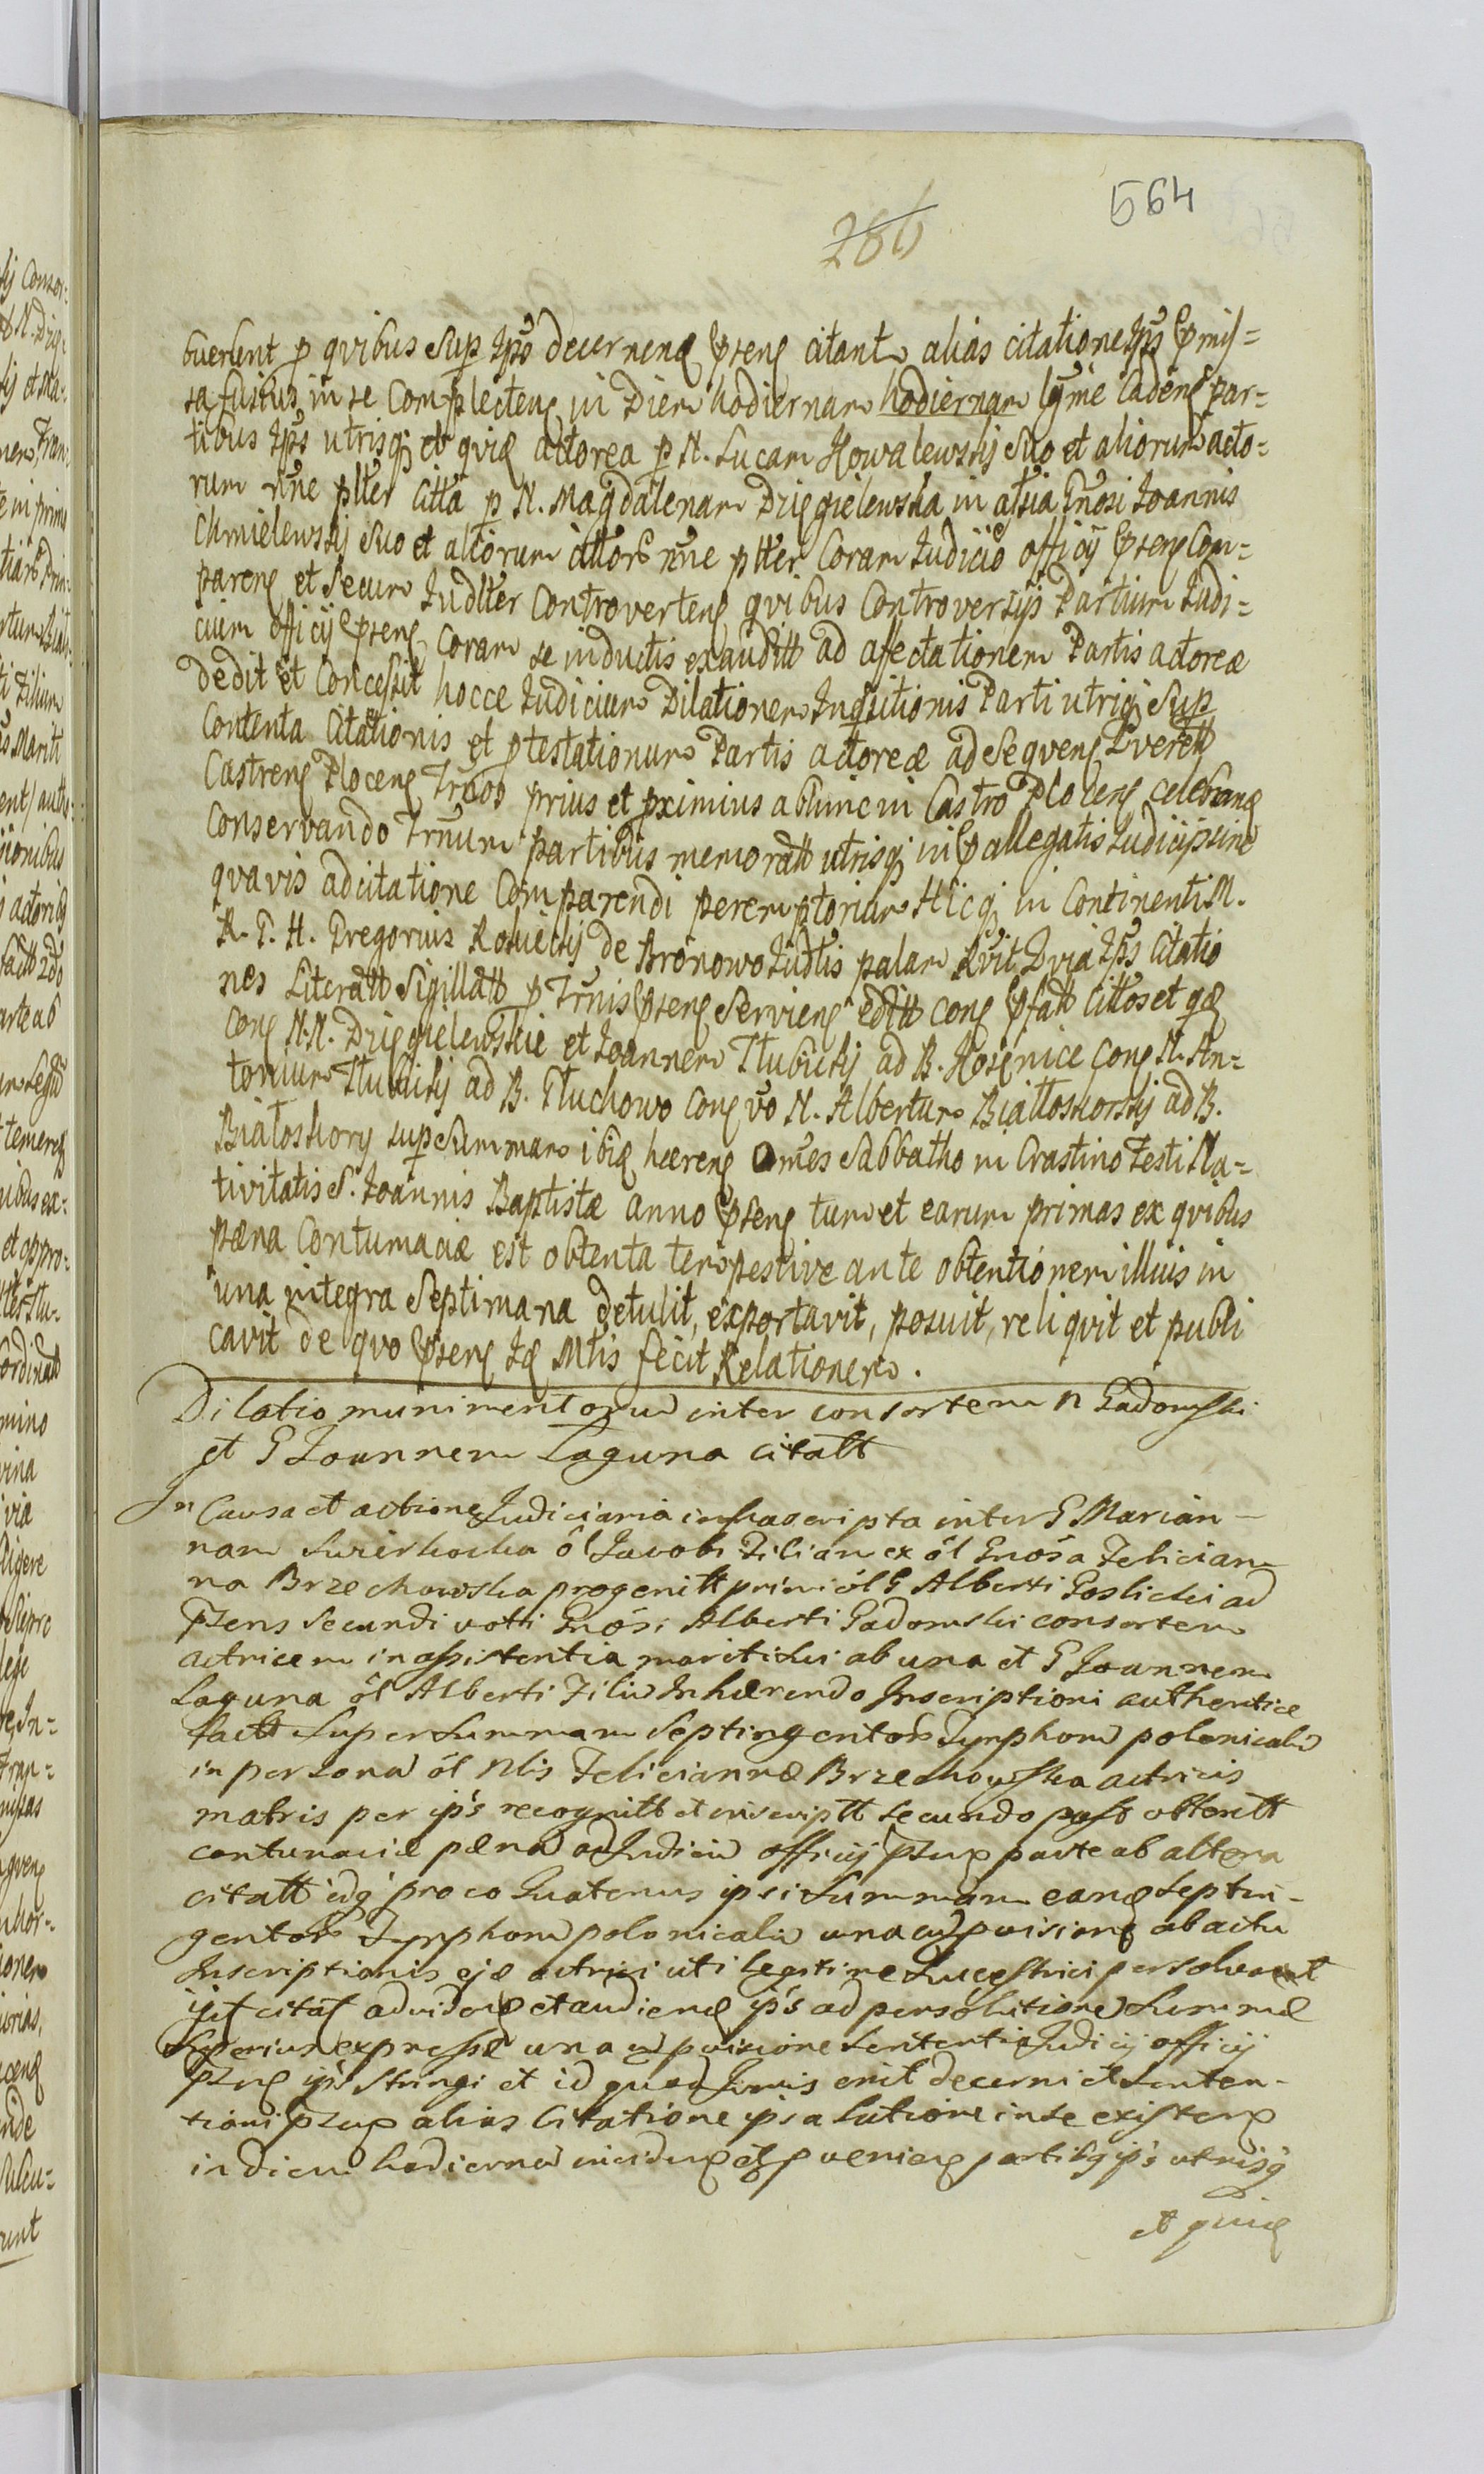 564
286
buerient p qvibus Sup Ip̃s decernend p̃seng citant alias citatione Ip̃s p̃mis=
sa fusius in se Complecteng in Diem hodiernam hodiernam lg̃me Cadeng par=
tibus Ip̃s utrisq; et qvia actorea p N. Lucam Kowalewskij Suo et aliorum acto=
rum nñe plter Citta p N. Magdalenam Dzięgielewska in assia Gñosi Joannis
Chmielewskij Suo et aliorum cittor nñe plter Coram Judicio officij p̃seng Com=
pareng et Secum Judlter Controverteng qvibus Controversijs Partium Judi=
cium officij p̃seng Coram se inductis exauditt ad affectationem Partis actoreæ
dedit et Concessit hocce Judicium Dilationem Inqsitionis Parti utriq; Sup
Contenta Citationis et ptestationum Partis actoreæ ad Seqveng Qverell
Castreng Ploceng Trños prius et pximius abhinc in Castro Ploceng celebrand
Conservando Trñum partibus memoratt utrisq; in p̃allegatis Judicijs sine
qvavis adcitatione Comparendi peremptorium Hicq; in Continenti M.
R. P. H. Gregorius Kosieckij de Bronowo Judlis palam Rvit Qvia Ip̃s Citatio
nes Literatt Sigillatt p Trñis p̃seng Servieng editt cong p̃fatt Cittos et qd
Cong N.N. Dzięgielewskie et Joannem Tłubickij ad B. Kosęnice Cong N. An=
tonium Tłubickij ad B. Tłuchowo Cong vo N. Albertum Białoskorskij ad B.
Białoskory sup Summam ibid hæreng Om̃es Sabbatho in Crastino Festi Na=
tivitatis S. Joannis Baptistæ anno p̃seng tum et earum primas ex qvibus
pæna Contumaciæ est obtenta tempestive ante obtentionem illius in
una integra Septimana detulit, exportavit, posuit, reliqvit et publi
cavit de qvo p̃seng Id Mtis fecit Relationem.
Dilatio munimentorum inter consortem N Gadomski
et G Joannem Laguna citatt
In Causa et actione Judiciaria infrascripta inter G Marian-
nam Swierkocka ol Jacobi Filiam ex ol Gnosa Felician-
na Brzechowska progenitt primi ol G Alberti Goslicki ad
p̃sens secundi voti Gnosi Alberti Gadomski consortem
actricem in assistentia mariti sui ab una et G Joannem
Laguna ol Alberti Filiu Inhærendo Inscriptioni authentice
factt super summam Septingentor Tynphorum polonicaliu
in persona ol Nlis Feliciannæ Brzechowska actricis
matris per ip̃s recognitt et inscriptt secundo post obtentt
contumaciæ pæna ad Judiciu officij p̃seng parte ab altera
citatt idq pro eo Quatenus ipsi Summam eand Septin-
gentor Tynphoru polonicaliu una cu pvisione ab actu
Inscriptionis ejd actrici uti legitime Successtrici persolvant
citat ad vidend et audiend ip̃s ad persolutione Summæ
Superius expressæ una cu pvisione Sententia Judicij officij
p̃seng ip̃s Stringi et id quod Juris erit decerni et Senten-
tioni p̃seng alias Citatione ip̃sa latiore in se existeng
in diem hodiernu incideng et pvenieng partibq ip̃s utrisq
et quia